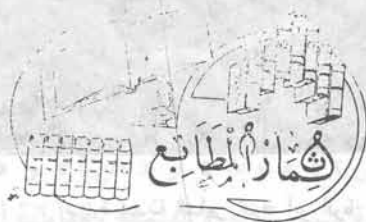 ثمار المطابع